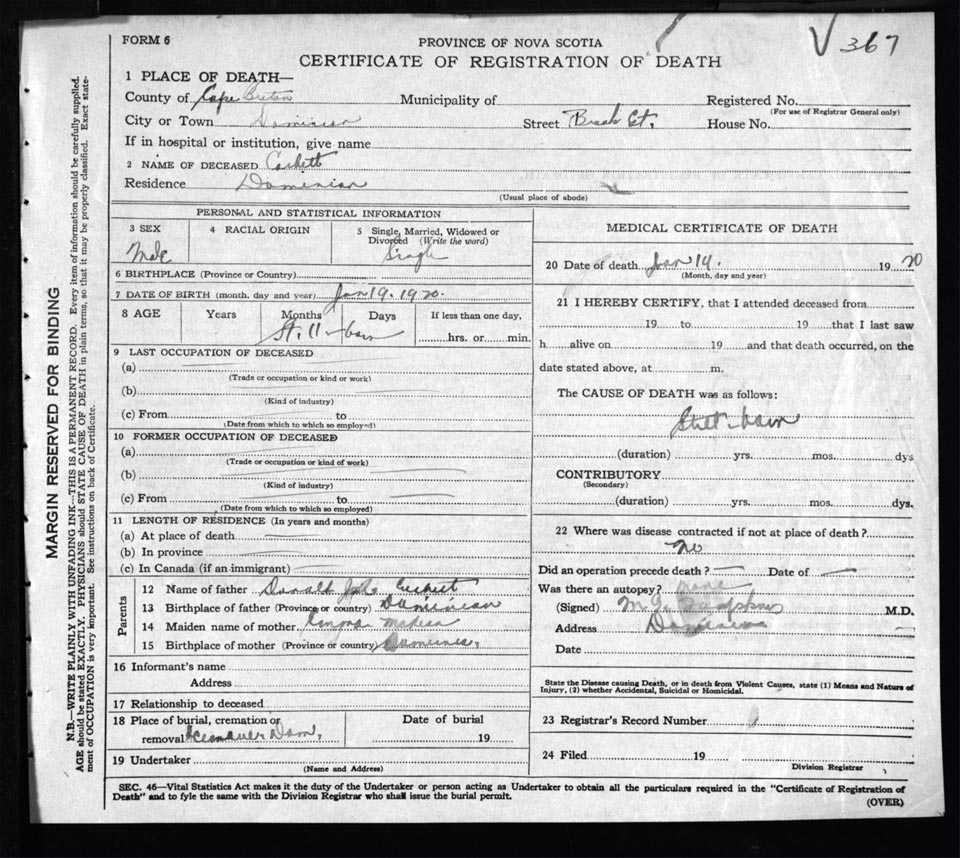 FORM 6
PROVINCE OF NOVA SCOTIA
367
CERTIFICATE OF REGISTRATION OF DEATH
1 PLACE OF DEATH—
County of Cape Breton Municipality of Registered No.
(For use of Registrar General only)
City or Town Dominion Street House No.
If in hospital or institution, give name
2 NAME OF DECEASED
Residence Dominion
(Usual place of abode)
PERSONAL AND STATISTICAL INFORMATION
3 SEX
Male
4 RACIAL ORIGIN
5 Single, Married, Widowed or
Divorced (Write the word)
Single
6 BIRTHPLACE (Province or Country)
7 DATE OF BIRTH (month, day and year) Jan 19. 1920.
8 AGE Years Months Days If less than one day,
hrs. or min.
Still-born
9 LAST OCCUPATION OF DECEASED
(a)
(Trade or occupation or kind or work)
(b)
(Kind of industry)
(c) From to
(Date from which to which so employed)
10 FORMER OCCUPATION OF DECEASED
(a)
(Trade or occupation or kind of work)
(b)
(Kind of industry)
(c) From to
(Date from which to which so employed)
11 LENGTH OF RESIDENCE (In years and months)
(a) At place of death
(b) In province
(c) In Canada (if an immigrant)
Parents
12 Name of father Donald
13 Birthplace of father (Province or country) Dominion
14 Maiden name of mother
15 Birthplace of mother (Province or country) Dominion
16 Informant's name
Address
17 Relationship to deceased
18 Place of burial, cremation or
removal Dom.
Date of burial
19
19 Undertaker
(Name and Address)
MEDICAL CERTIFICATE OF DEATH
20 Date of death Jan 19. 1920
(Month, day and year)
21 I HEREBY CERTIFY, that I attended deceased from
19 to 19 that I last saw
h alive on 19 and that death occurred, on the
date stated above, at m.
The CAUSE OF DEATH was as follows:
Still-born
(duration) yrs. mos. dys
CONTRIBUTORY
(Secondary)
(duration) yrs. mos. dys.
22 Where was disease contracted if not at place of death?
No
Did an operation precede death? — Date of —
Was there an autopsy? none
(Signed) M.D.
Address Dominion
Date
State the Disease causing Death, or in death from Violent Causes, state (1) Means and Nature of
Injury, (2) whether Accidental, Suicidal or Homicidal.
23 Registrar's Record Number
24 Filed 19
Division Registrar
SEC. 46—Vital Statistics Act makes it the duty of the Undertaker or person acting as Undertaker to obtain all the particulars required in the "Certificate of Registration of
Death" and to fyle the same with the Division Registrar who shall issue the burial permit.
(OVER)
MARGIN RESERVED FOR BINDING
N.B.—WRITE PLAINLY WITH UNFADING INK—THIS IS A PERMANENT RECORD. Every item of information should be carefully supplied.
AGE should be stated EXACTLY. PHYSICIANS should STATE CAUSE OF DEATH in plain terms, so that it may be properly classified. Exact state-
ment of OCCUPATION is very important. See instructions on back of Certificate.